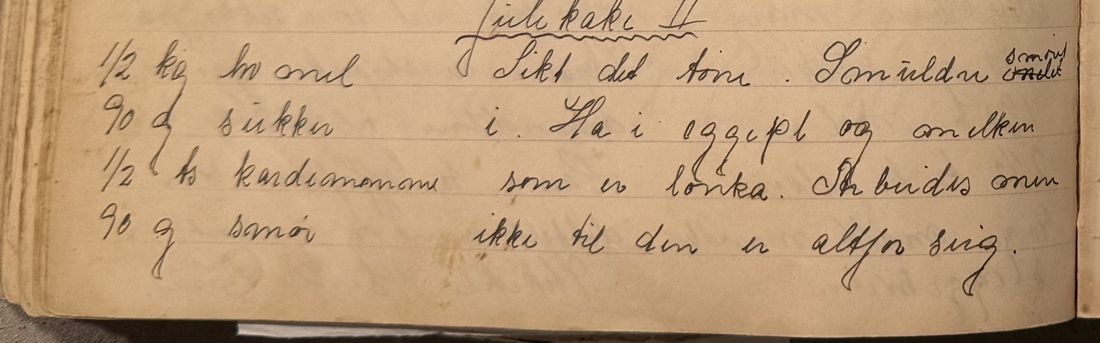 Julekake II
1/2 kg hv mel Sikt det tørre. Smuldre smøret
90 g sukker i. Ha i eggepl og melken
1/2 ts kardemomme som er lunka. Arbeides men
90 g smør ikke til den er altfor seig.